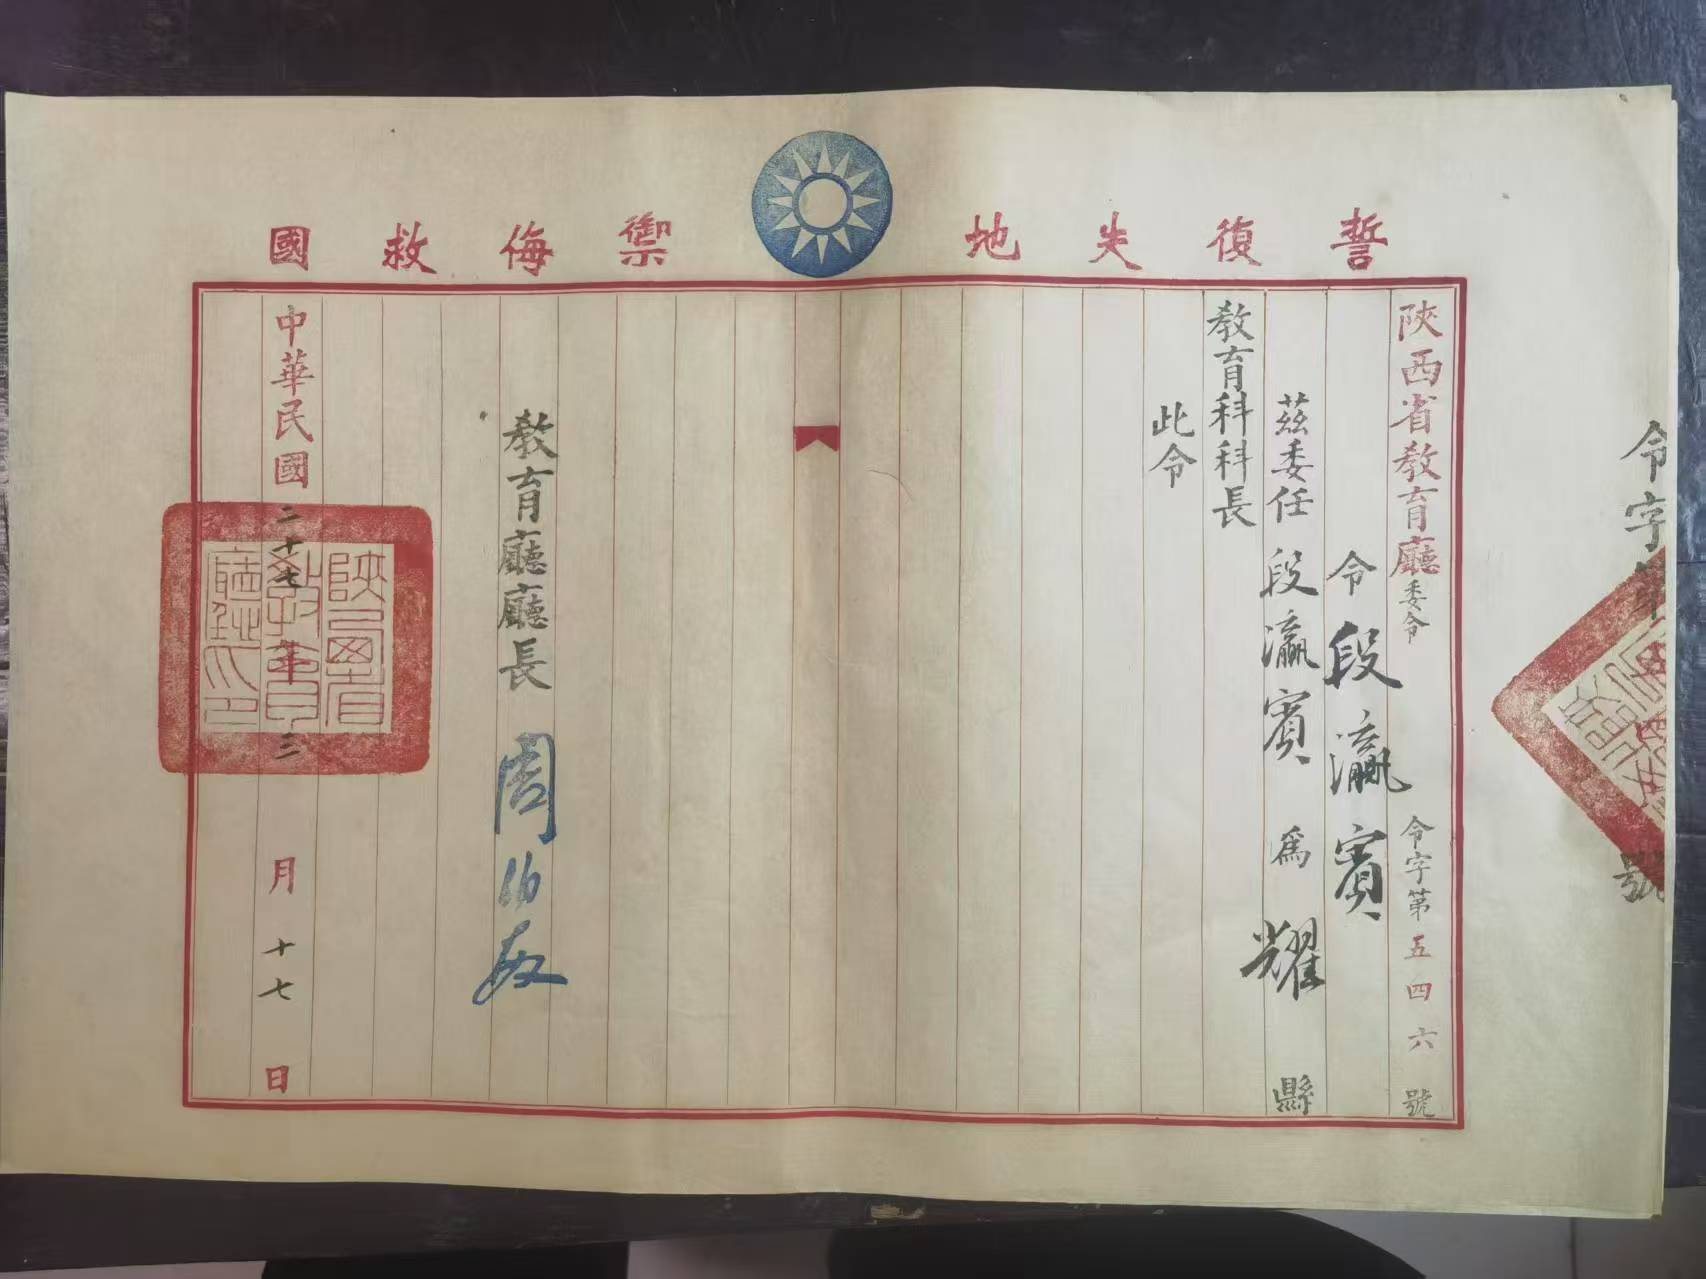 誓復失地
禦侮救國
陝西省教育廳委令 令字第五四六號
令段瀛賓
茲委任段瀛賓為耀縣
教育科科長
此令
教育廳廳長 周伯敏
中華民國二十七年三月十七日
陝西省
教育
廳之印
令字第
號